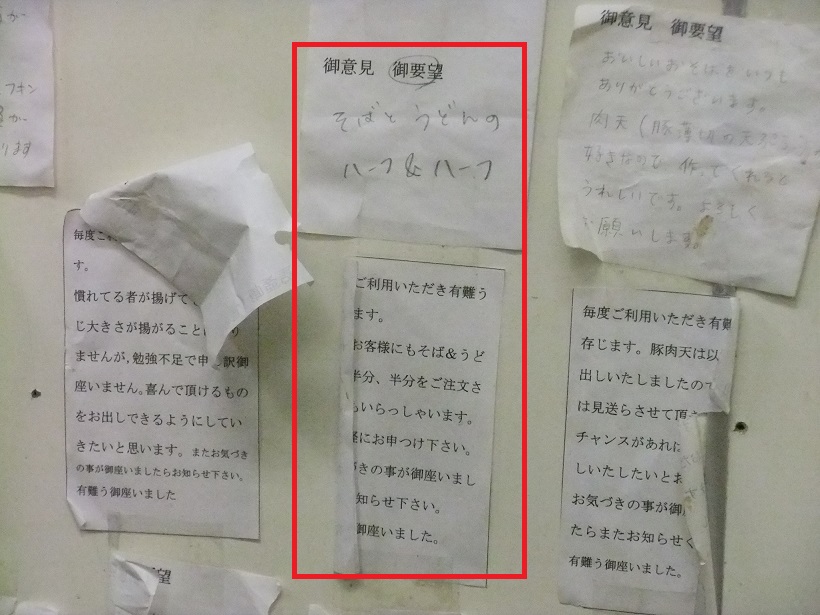 フキン
ります
御意見 御要望
そばとうどんの
ハーフ&ハーフ
御意見 御要望
おいしいおそばをいつも
ありがとうございます。
肉天(豚薄切の天ぷら
好きなので 作ってくれると
うれしいです。よろしく
お願いします。
毎度ご
す。
慣れてる者が揚げて、
じ大きさが揚がること
ませんが,勉強不足で申 訳御
座いません。喜んで頂けるもの
をお出しできるようにしてい
きたいと思います。またお気づき
の事が御座いましたらお知らせ下さい。
有難う御座いました
ご利用いただき有難う
ます。
お客様にもそば&うど
半分、半分をご注文さ
もいらっしゃいます。
軽にお申つけ下さい。
づきの事が御座いまし
知らせ下さい。
御座いました。
毎度ご利用いただき有難
存じます。豚肉天は以
出しいたしましたので
は見送らさせて頂
チャンスがあれば
しいたしたいとお
お気づきの事が御
たらまたお知らせく
有難う御座いました。
望